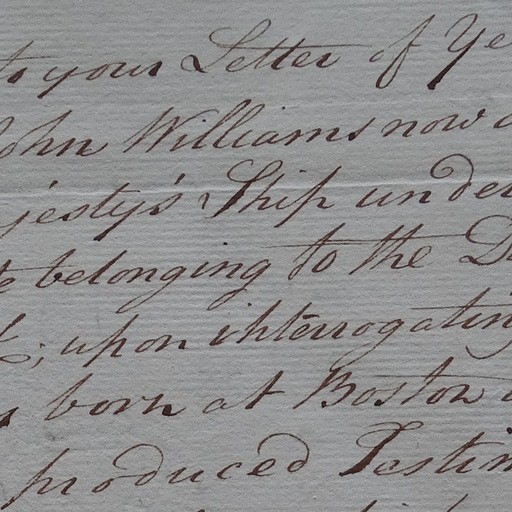 to your Letter of Ye
John Williams now
jesty's Ship under
belonging to the D
; upon interrogating
born at Boston
produced Testim